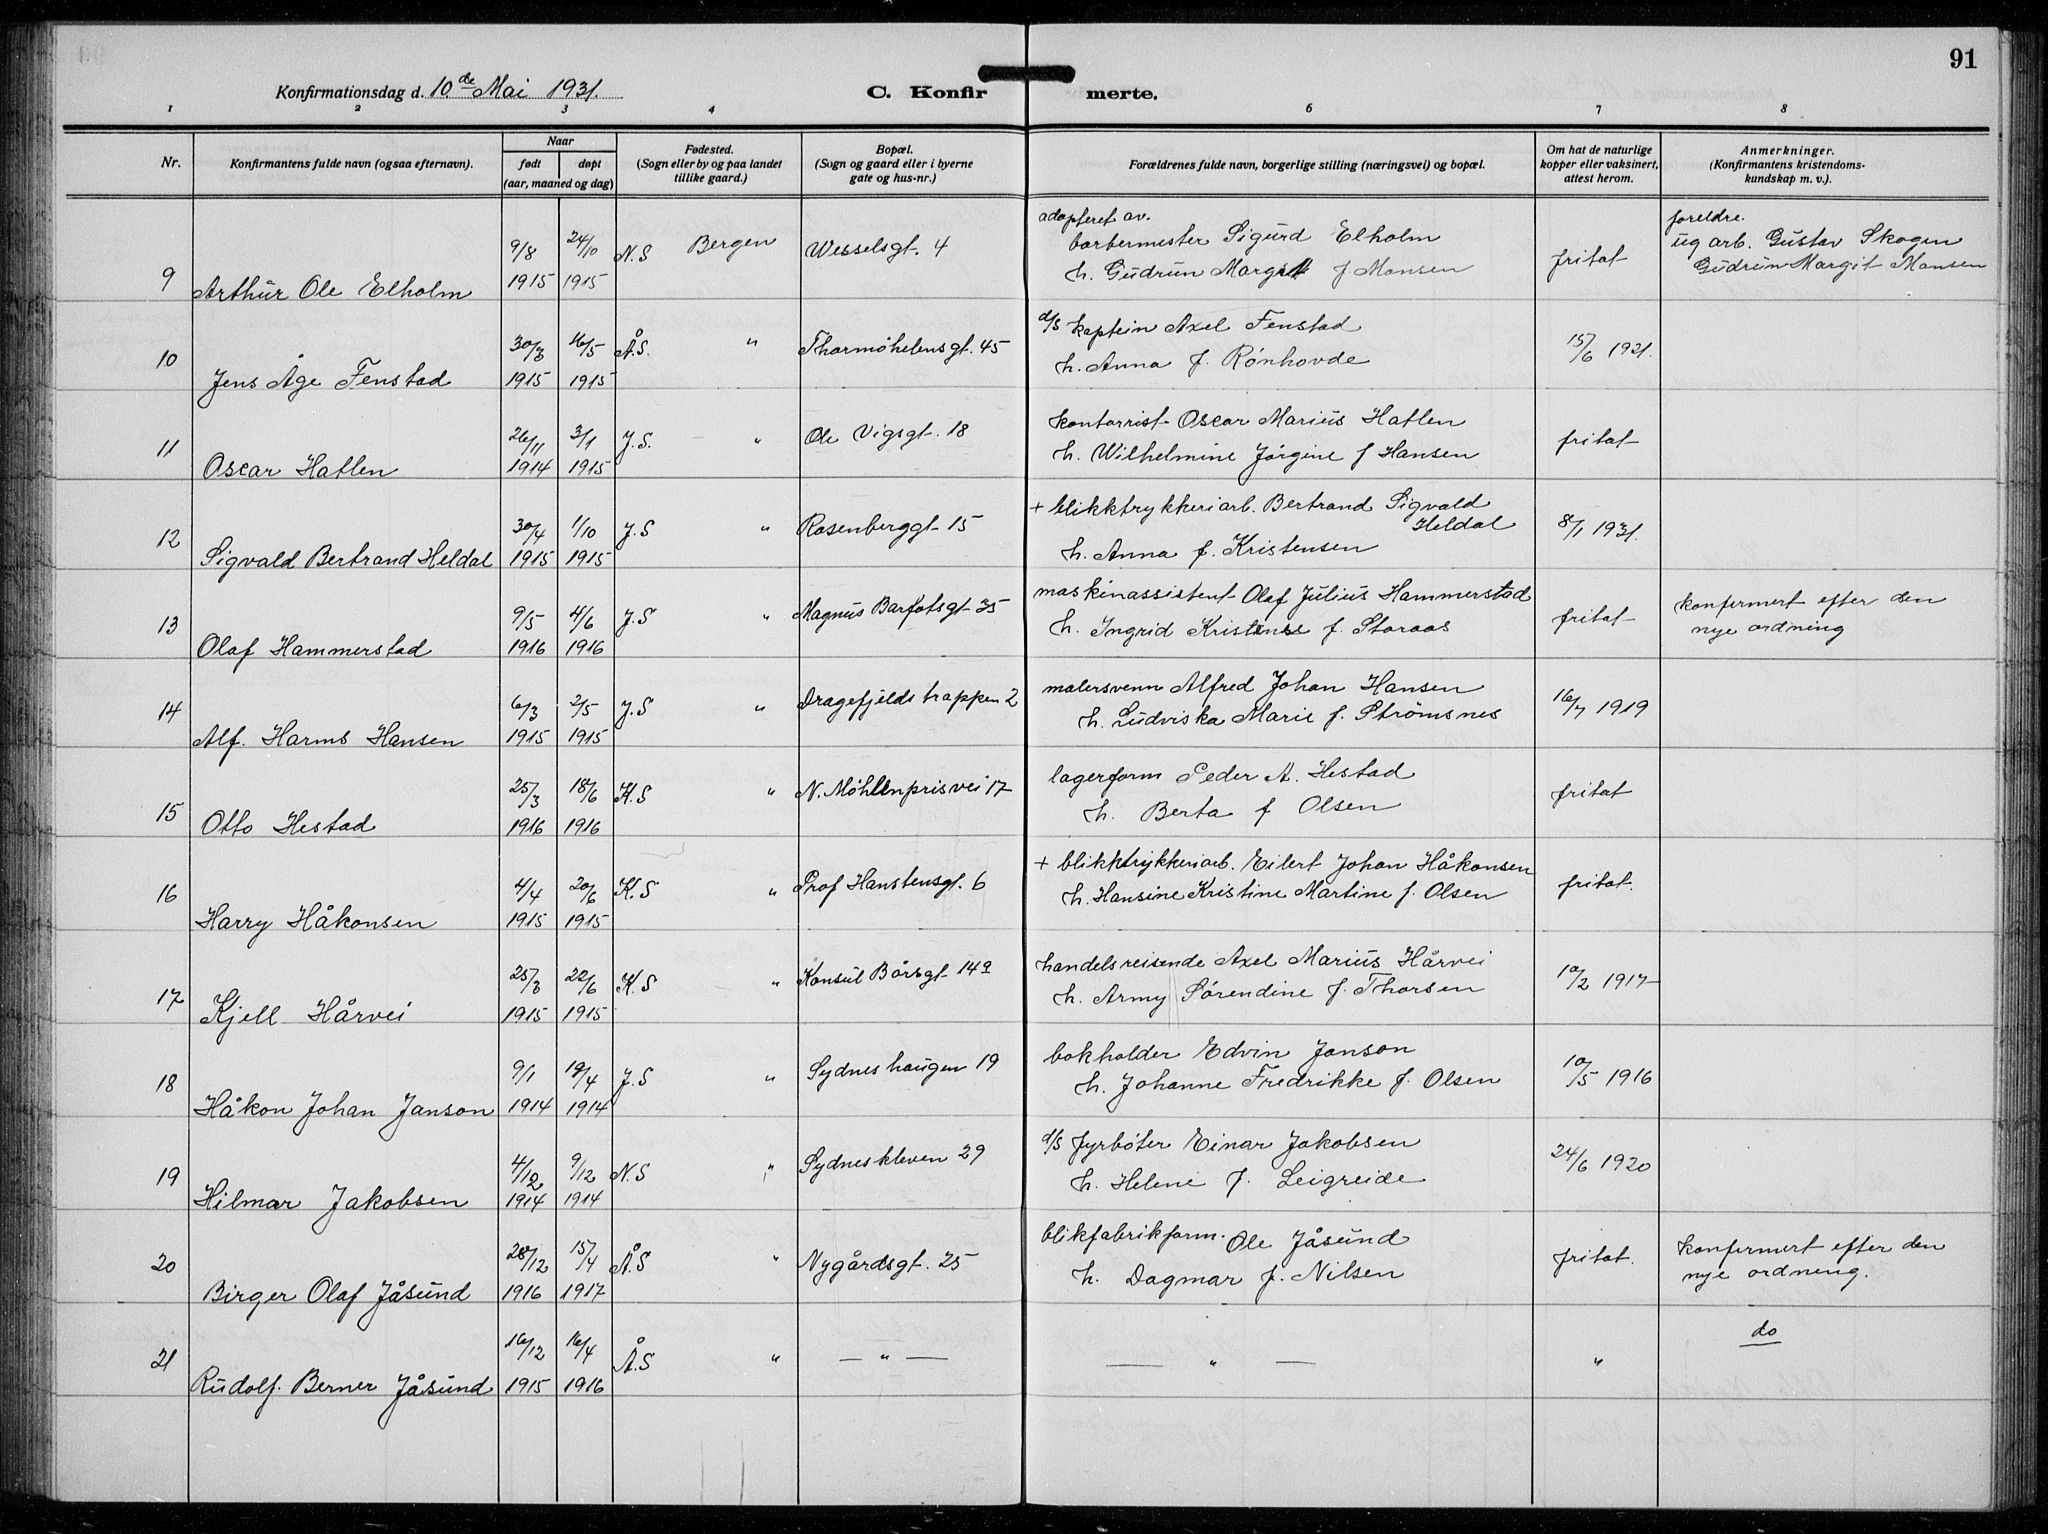 91
Konfirmationsdag d. 10de Mai 1931.
C. Konfirmerte.
1 2 3 4 6 7 8
Nr.
Konfirmantens fulde navn (ogsaa efternavn).
Naar
født døpt
(aar, maaned og dag)
Fødested.
(Sogn eller by og paa landet
tillike gaard.)
Bopæl.
(Sogn og gaard eller i byerne
gate og hus-nr.)
Forældrenes fulde navn, borgerlige stilling (næringsvei) og bopæl.
Om hat de naturlige
kopper eller vaksinert,
attest herom.
Anmerkninger.
(Konfirmantens kristendoms-
kundskap m. v.).
9 Arthur Ole Elholm 9/8 1915 24/10 1915 N.S Bergen Wesselsgt. 4
adopteret av.
barbermester Sigurd Elholm
h. Gudrun Margit f Monsen
fritat
foreldre.
ug arb. Gustav Skogen
Gudrun Margit Monsen
10 Jens Åge Fenstad 30/3 1915 16/5 1915 Å.S. " Thormøhelensgt. 45
d/s kaptein Axel Fenstad
h. Anna f. Rønhovde
15/6 1921.
11 Oscar Hatlen 26/11 1914 3/1 1915 J.S. " Ole Vigsgt. 18
kontorrist Oscar Marius Hatlen
h. Wilhelmine Jørgine f Hansen
fritat
12 Sigvald Bertrand Heldal 30/4 1915 1/10 1915 J.S " Rosenberggt 15
+ blikktrykkeriarb. Bertrand Sigvald
Heldal
h. Anna f. Kristensen
8/1 1931.
13 Olaf Hammerstad 9/5 1916 4/6 1916 J.S " Magnus Barfotsgt 35
maskinassistent Olaf Julius Hammerstad
h. Ingrid Kristense f. Storaas
fritat
konfermert efter den
nye ordning
14 Alf. Harms Hansen 6/3 1915 2/5 1915 J.S " Dragefjelds trappen 2
malersvenn Alfred Johan Hansen
h. Ludviska Marie f. Strømsnes
16/7 1919
15 Otto Hestad 25/3 1916 18/6 1916 K.S " N. Møhlenprisvei 17
lagerform Peder A. Hestad
h. Berta f Olsen
fritat
16 Harry Håkonsen 4/4 1915 20/6 1915 K.S " Prof Hanstensgt. 6
+ blikktrykkeriarb. Eilert Johan Håkonsen
h. Hansine Kristine Martine f. Olsen
fritat.
17 Kjell Hårvei 25/3 1915 22/6 1915 K.S " Konsul Børsgt 14a
handelsreisende Axel Marius Hårvei
h. Army Sørendine f. Thorsen
10/2 1917
18 Håkon Johan Janson 9/1 1914 19/4 1914 J.S " Sydneshaugen 19
bokholder Edvin Janson
h. Johanne Fredrikke f. Olsen
10/5 1916
19 Hilmar Jakobsen 4/12 1914 9/12 1914 N.S " Sydneskleven 29
d/s fyrbøter Einar Jakobsen
h. Helene f. Leigreide
24/6 1920
20 Birger Olaf Jåsund 28/12 1916 15/4 1917 Å.S " Nygårdsgt. 25
blikfabrikform. Ole Jåsund
h. Dagmar f. Nilsen
fritat.
konfermert efter den
nye ordning.
21 Rudolf Berner Jåsund 16/12 1915 16/4 1916 Å.S " — " —
— " —
"
do